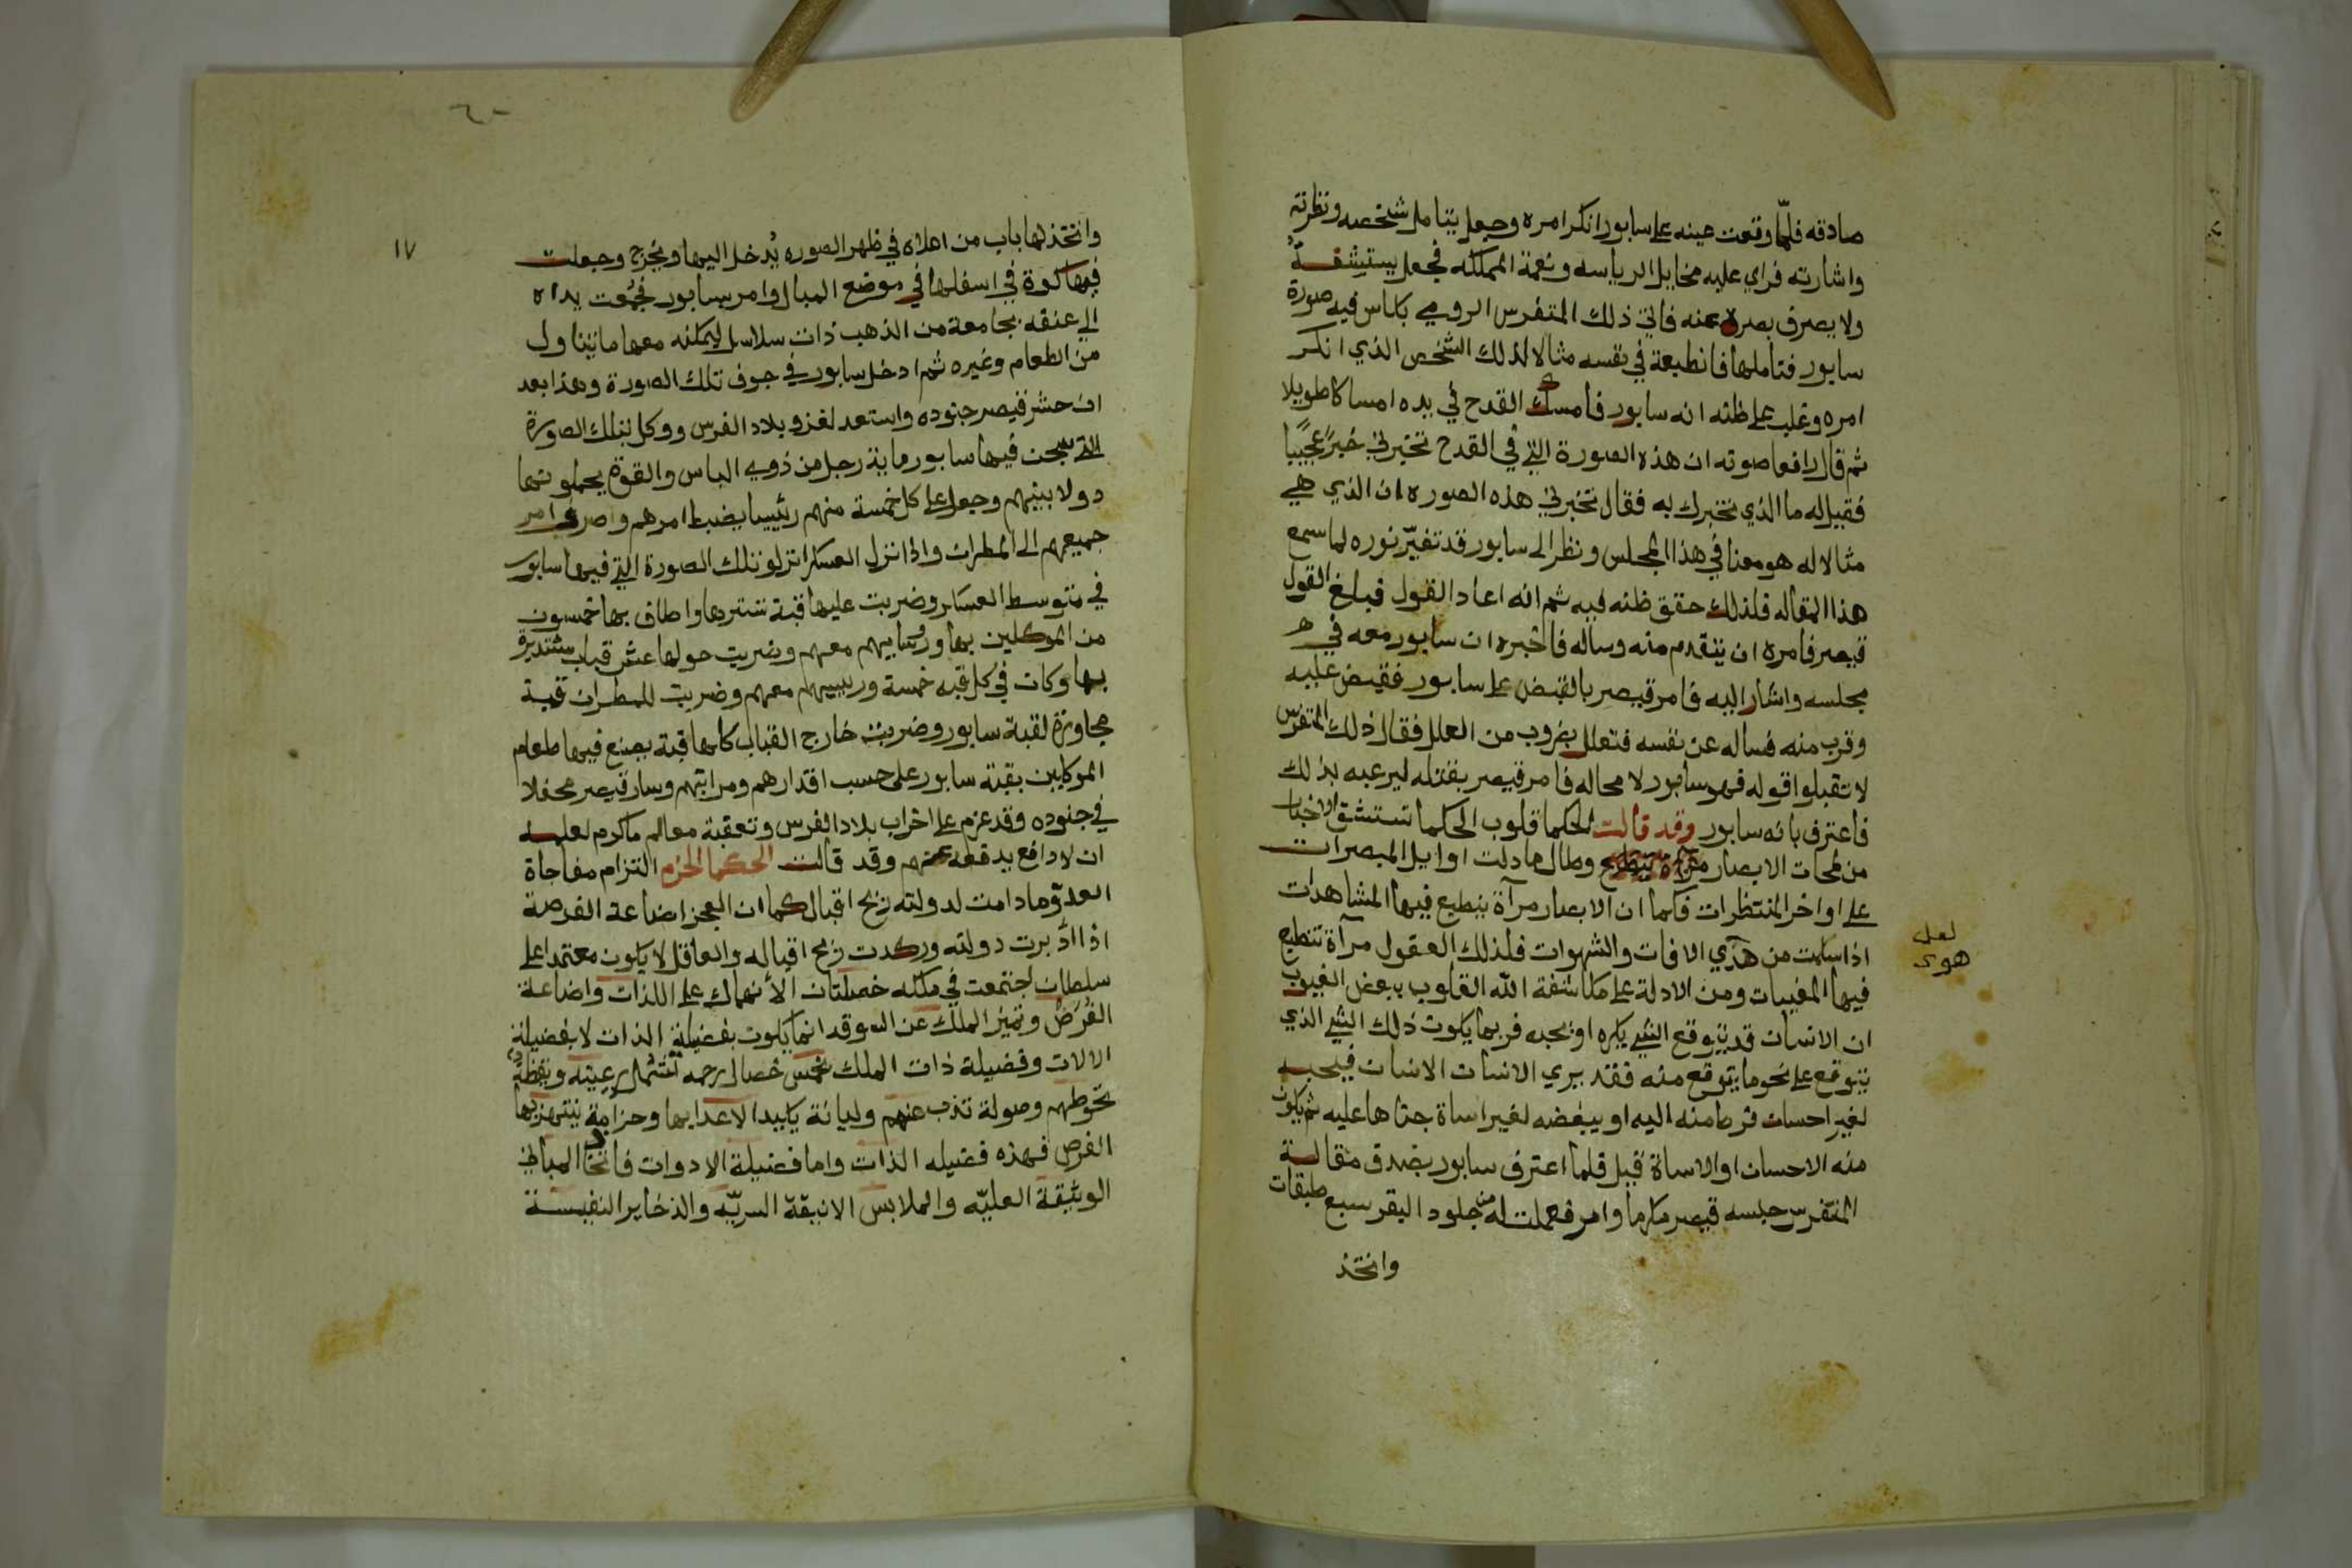 صادقه فلمّا وقعت عينه على سابور انكر امره وجعل يتامل شخصه ونظرته
واشارته فراي عليه مخايل الرياسه ونعمة المملكه فجعل يستشفه
ولا يصرف بصره عنه فاتي ذلك المتفرس الرومي بكاس فيه صورة
سابور فتاملها فانطبعة في نفسه مثالا لذلك الشخص الذي انكر
امره وغلب على ظنه انه سابور فامسك القدح في يده امساكا طويلا
ثم قال رافعا صوته ان هذه الصورة التي في القدح تخبرني خبرًا عجيبًا
فقيل له ما الذي تخبرك به فقال تخبرني هذه الصوره ان الذي هي
مثالا له هو معنا في هذا المجلس ونظر الى سابور قد تغيّر نوره لما سمع
هذا المقاله فلذلك حقق ظنه فيه ثم انه اعاد القول فبلغ القول
قيصر فامره ان يتقدم منه وساله فاخبره ان سابور معه في
مجلسه واشار اليه فامر قيصر بالقبض على سابور فقبض عليه
وقرب منه فساله عن نفسه فتعلل بضروب من العلل فقال ذلك المتفرس
لا تقبلوا قوله فهو سابور لا محاله فامر قيصر بقتله ليرعبه بذلك
فاعترف بانه سابور وقد قالت الحكما قلوب الحكما تستشق الاخبار
من لمحات الابصار مرآة تنطبع وطال ما دلت اوايل المبصرات
على اواخر المنتظرات فكما ان الابصار مرآة ينطبع فيها المشاهدات
اذا سلمت من هذي الافات والشهوات فلذلك العقول مرآة تنطبع
لعل
هوى
فيها المغيبات ومن الادلة على مكاشفة الله القلوب ببعض الغيوب
ان الانسان قد يتوقع الشي يكره او يحبه فربما يكون ذلك الشي الذي
يتوقع على نحو ما يتوقع منه فقد يري الانسان الانسان فيحبه
لغير احسان فرط منه اليه او يبغضه لغير اساة جناها عليه ثم يكون
منه الاحسان او الاساة قبل فلما اعترف سابور بصدق مقالة
المتفرس حبسه قيصر مكرما وامر فعملت له من جلود البقر سبع طبقات
واتخذ
١٧
واتخذ لها باب من اعلاه في ظهر الصوره يُدخل اليها ويُخرج وجعلت
فيها كوة في اسفلها في موضع المبال وامر بسابور فجُمعت يداه
الى عنقه بجامعة من الذهب ذات سلاسل ليمكنه معها ما يتناول
من الطعام وغيره ثم ادخل سابور في جوف تلك الصورة وهذا بعد
ان حشر قيصر جنوده واستعد لغزو بلاد الفرس ووكل بتلك الصورة
التي سجن فيها سابور ماية رجل من ذوي الباس والقوة يحملونها
دولا بينهم وجعل على كل خمسة منهم رئيسا يضبط امرهم واصرف امر
جميعهم الى المطران واذا نزل العسكر انزلو تلك الصورة التي فيها سابور
في متوسط العسكر وضربت عليها قبة تسترها واطاف بها خمسون
من الموكلين بها ورؤسايهم معهم وضربت حولها عشر قباب مستديرة
بها وكان في كل قبه خمسة ورييسهم معهم وضربت للمطران قبة
مجاورة لقبة سابور وضربت خارج القباب كلها قبة يصنع فيها طعام
الموكلين بقبة سابور على حسب اقدارهم ومراتبهم وسار قيصر محفلا
في جنوده وقد عزم على اخراب بلاد الفرس وتعقبة معالم ماكرم لعلمه
ان لا دافع يدفعه عنهم وقد قالت الحكما الحزم التزام مفاجاة
العدوّ ما دامت لدولته ريح اقبال كما ان العجز اضاعة الفرصة
اذا ادبرت دولته وركدت ريح اقباله والعاقل لا يكون معتمدا على
سلطان اجتمعت في ملكه خصلتان الانهماك على اللذات واضاعة
الفُرَصْ وتميز الملك عن السوقد انما يكون بفضيلة الذات لا بفضيلة
الالات وفضيلة ذات الملك بخمس خصال رحمه تشمل رعيته ويقظة
تحوطهم وصولة تذب عنهم ولبانة يكيد الاعدا بها وحزامة ينتهز بها
الفرص فهذه فضيله الذات واما فضيلة الادوات فاتخاذ المباني
الوثيقة العليّه والملابس الانيقة السريّه والذخاير النفيسة